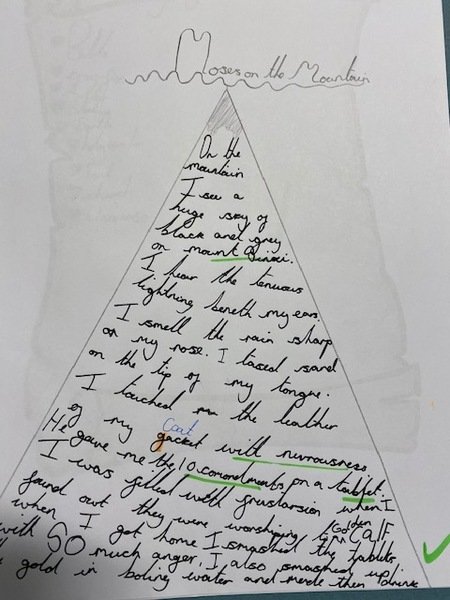 Moses on the Mountain
On the
mountain
I see a
huge sky of
black and grey
on mount Sinai.
I hear the tenuous
lightning beneth my ears.
I smell the rain sharp
on my nose. I tased sand
on the tip of my tongue.
I touched the leather
Coat
of my gacket with nervousness
He gave me the 10 comondments on a tablet.
I was filled with frustarsion when I
found out they were worshiping Golden Calf
when I got home I smashed the tablets
with SO much anger. I also smashed up
gold in boling water and made them drink